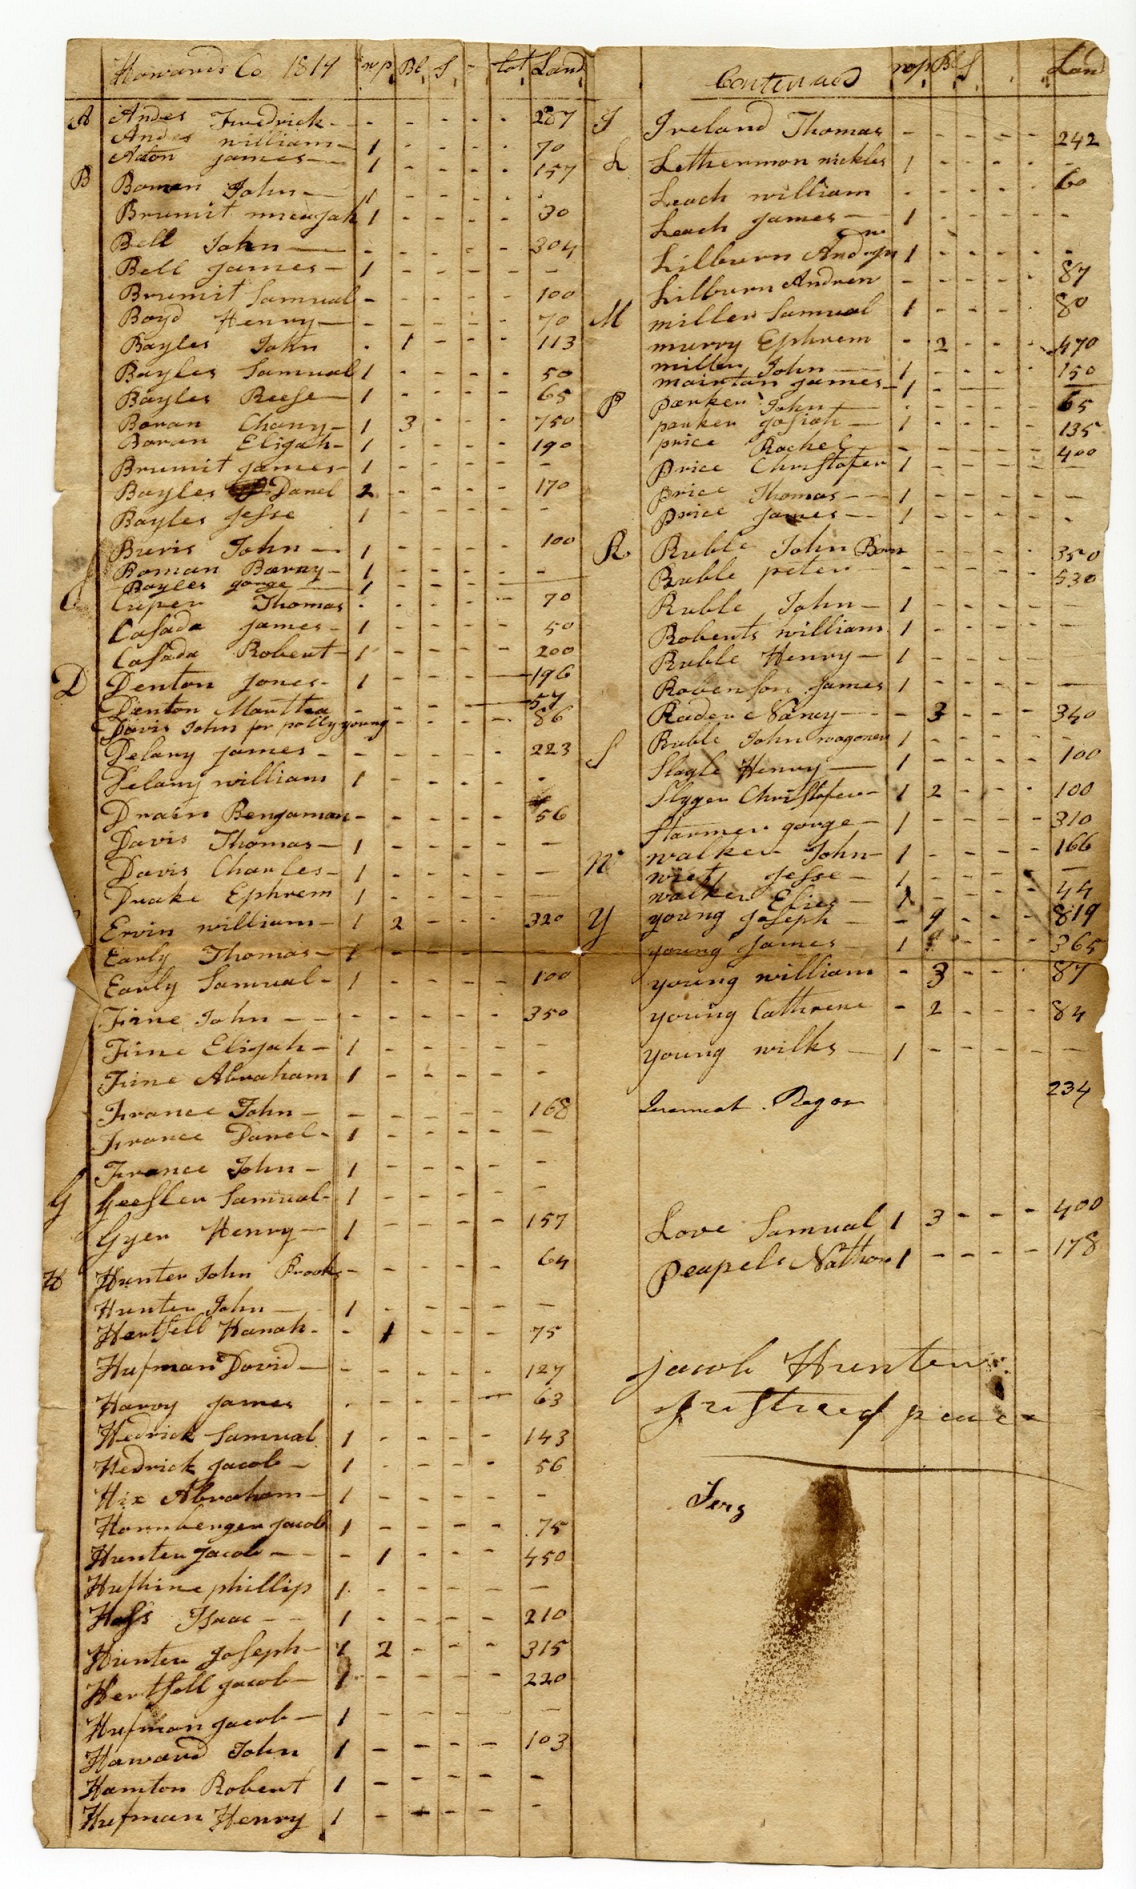 Howards Co 1814 wp Bl S - tot Land
A Andes Fredrick - - - - - 287
Andes william 1 - - - - 70
Acton james 1 - - - - 157
B Boman John 1 - - - - -
Brumit micajah 1 - - - - 30
Bell John - - - - - 304
Bell james 1 - - - - -
Brumit Samual - - - - - 100
Boyd Henry - - - - - 70
Bayles John - 1 - - - 113
Bayles Samual 1 - - - - 50
Bayles Reese 1 - - - - 65
Boran Chany 1 3 - - - 750
Boran Elijah 1 - - - - 190
Brumit james 1 - - - - -
Bayles Danel 2 - - - - 170
Bayles jesse 1 - - - - -
Bevis John 1 - - - - 100
Boman Barny 1 - - - - -
Bayles gorge 1 - - - - -
C Cuper Thomas - - - - - 70
Casada james 1 - - - - 50
Casada Robert 1 - - - - 200
D Denton jones 1 - - - - 196
Denton Marthea - - - - - 57
Davis John for polly young - - - - 86
Delany james - - - - - 223
Delany william 1 - - - - -
Drain Bengaman - - - - - 56
Davis Thomas 1 - - - - -
Davis Charles 1 - - - - -
Drake Ephrem 1 - - - - -
Ervin william 1 2 - - - 320
Early Thomas 1 - - - - -
Early Samual 1 - - - - 100
Fine John - - - - - 350
Fine Elijah 1 - - - - -
Fine Abraham 1 - - - - -
France John - - - - - 168
France Danel 1 - - - - -
France John 1 - - - - -
G Geesler Samual 1 - - - - -
Gyer Henry 1 - - - - 157
H Hunter John Brook - - - - - 64
Hunter John 1 - - - - -
Hartsell Hanah - 1 - - - 75
Hufman David - - - - - 127
Harvy james - - - - - 63
Hedrick Samual 1 - - - - 143
Hedrick jacob 1 - - - - 56
Hix Abraham 1 - - - - -
Hornberger jacob 1 - - - - 75
Hunter jacob - 1 - - - 450
Hushine phillip 1 - - - - -
Hass Isaac 1 - - - - 210
Hunter joseph 1 2 - - - 315
Hartsell jacob 1 - - - - 220
Hufman jacob 1 - - - - -
Haward John 1 - - - - 103
Hamton Robert 1 - - - - -
Hufman Henry 1 - - - - -
Continued wp Bl S Land
I Ireland Thomas - - - - - 242
L Lethermon nickles 1 - - - - -
Leach william - - - - - 60
Leach james 1 - - - - -
Lilburn Andrew 1 - - - - -
Lilburn Andrew - - - - - 87
M miller Samual 1 - - - - 80
murry Ephrem - 2 - - - 470
miller John 1 - - - - 150
mointan james 1 - - - - -
P parker John - - - - - 65
parker josiah 1 - - - - 135
price Rachel - - - - - 400
price Christofer 1 - - - - -
price Thomas 1 - - - - -
price james 1 - - - - -
R Ruble John Born - - - - 350
Ruble peter - - - - - 530
Ruble John 1 - - - - -
Roberts william 1 - - - - -
Ruble Henry 1 - - - - -
Robenson james 1 - - - - -
Rodere Nancy - 3 - - - 340
Ruble John wagoner 1 - - - - -
S Slagle Henry 1 - - - - 100
Slyger Christofer 1 2 - - - 100
Starmer gorge 1 - - - - 310
W walker John 1 - - - - 166
jesse 1 - - - - -
walker Elies 1 - - - - 44
Y young joseph - 9 - - - 819
young james 1 - - - 365
young william - 3 - - - 87
young Cathrene - 2 - - - 84
young wilks 1 - - - - -
234
Love Samual 1 3 - - - 400
peapels Nathan 1 - - - - 178
jacob Hunter
justice of peace